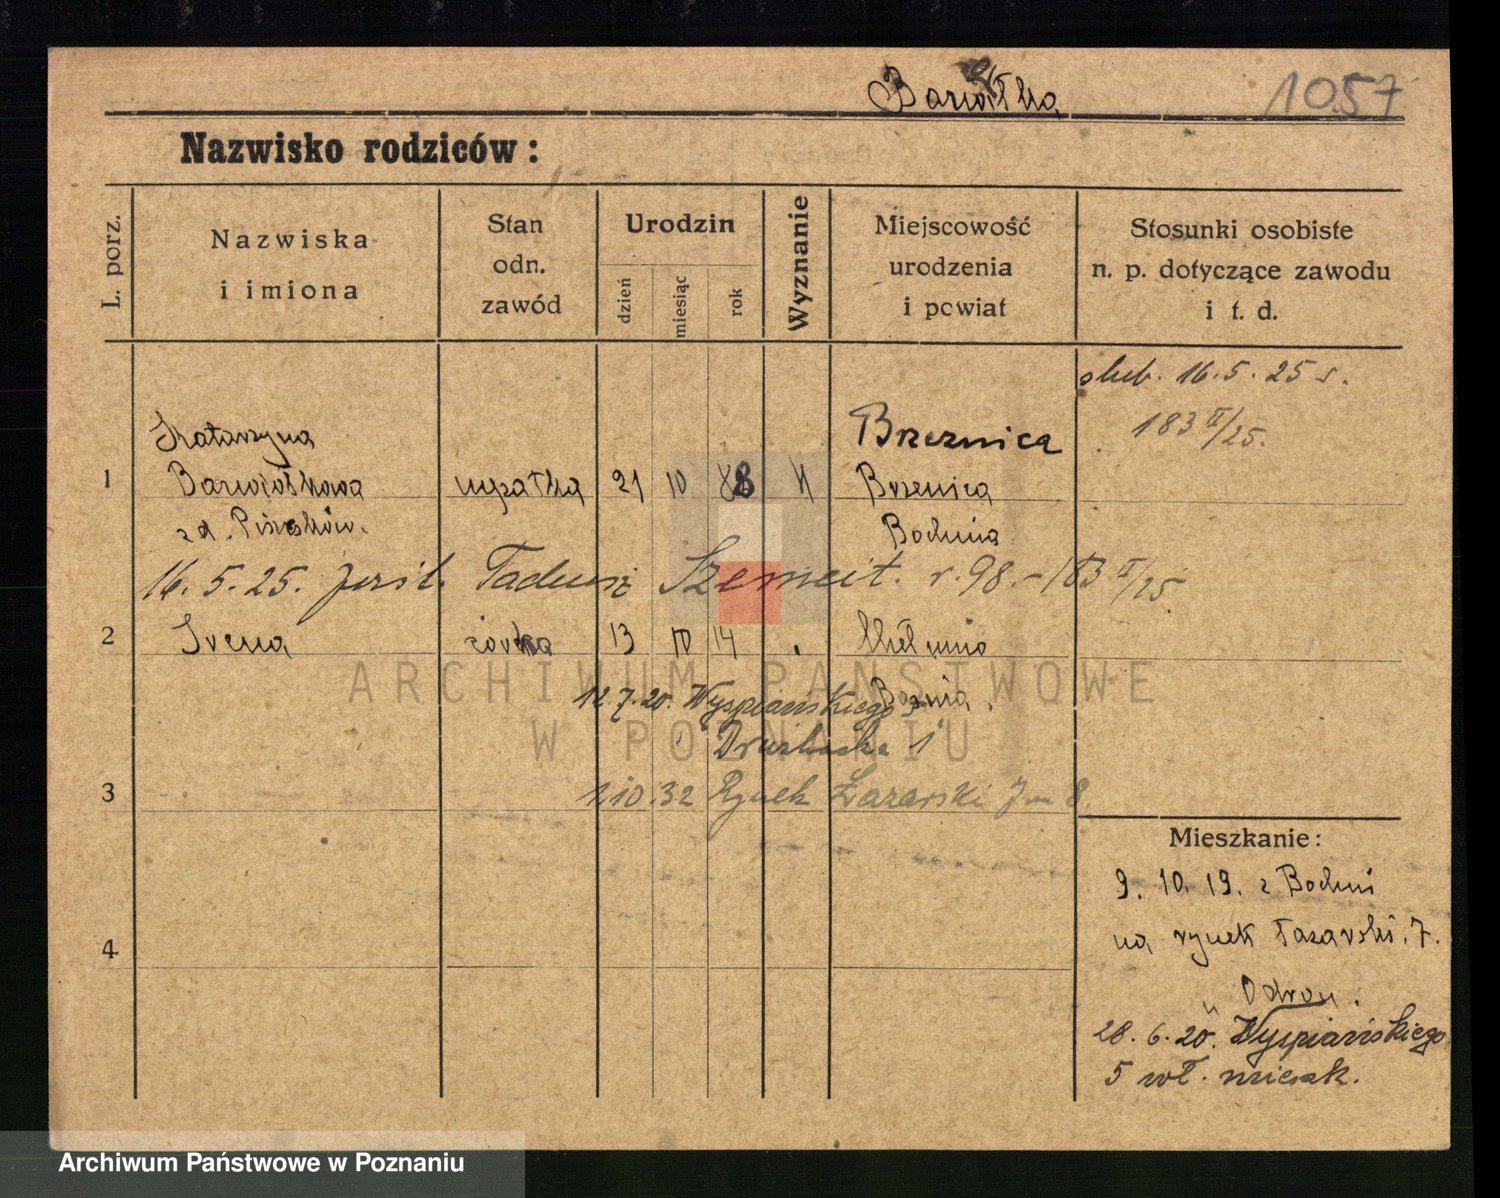 Barwiołka
1057
Nazwisko rodziców:
L. porz.
Nazwiska
i imiona
Stan
odn.
zawód
Urodzin
dzień
miesiąc
rok
Wyznanie
Miejscowość
urodzenia
i powiat
Stosunki osobiste
n. p. dotyczące zawodu
i t. d.
ślub. 16.5.25 r.
183 II/25.
Katarzyna
Brzeznica
1
21 10 88
Brzenica
z d.
Bochnia
16.5.25. Tadeusz r. 98. - 183 II/25
2
Irena
córka
13 10 14
12.7.20. Wyspiańskiego
1
3
1.10.32 Rynek Łazarski 7 m 8.
Mieszkanie:
9. 10. 19. z Bochni
na rynek Łazarski. 7.
4
28. 6. 20. Wyspiańskiego
5 wł. mieszk.
ARCHIWUM PAŃSTWOWE
W POZNANIU
Archiwum Państwowe w Poznaniu